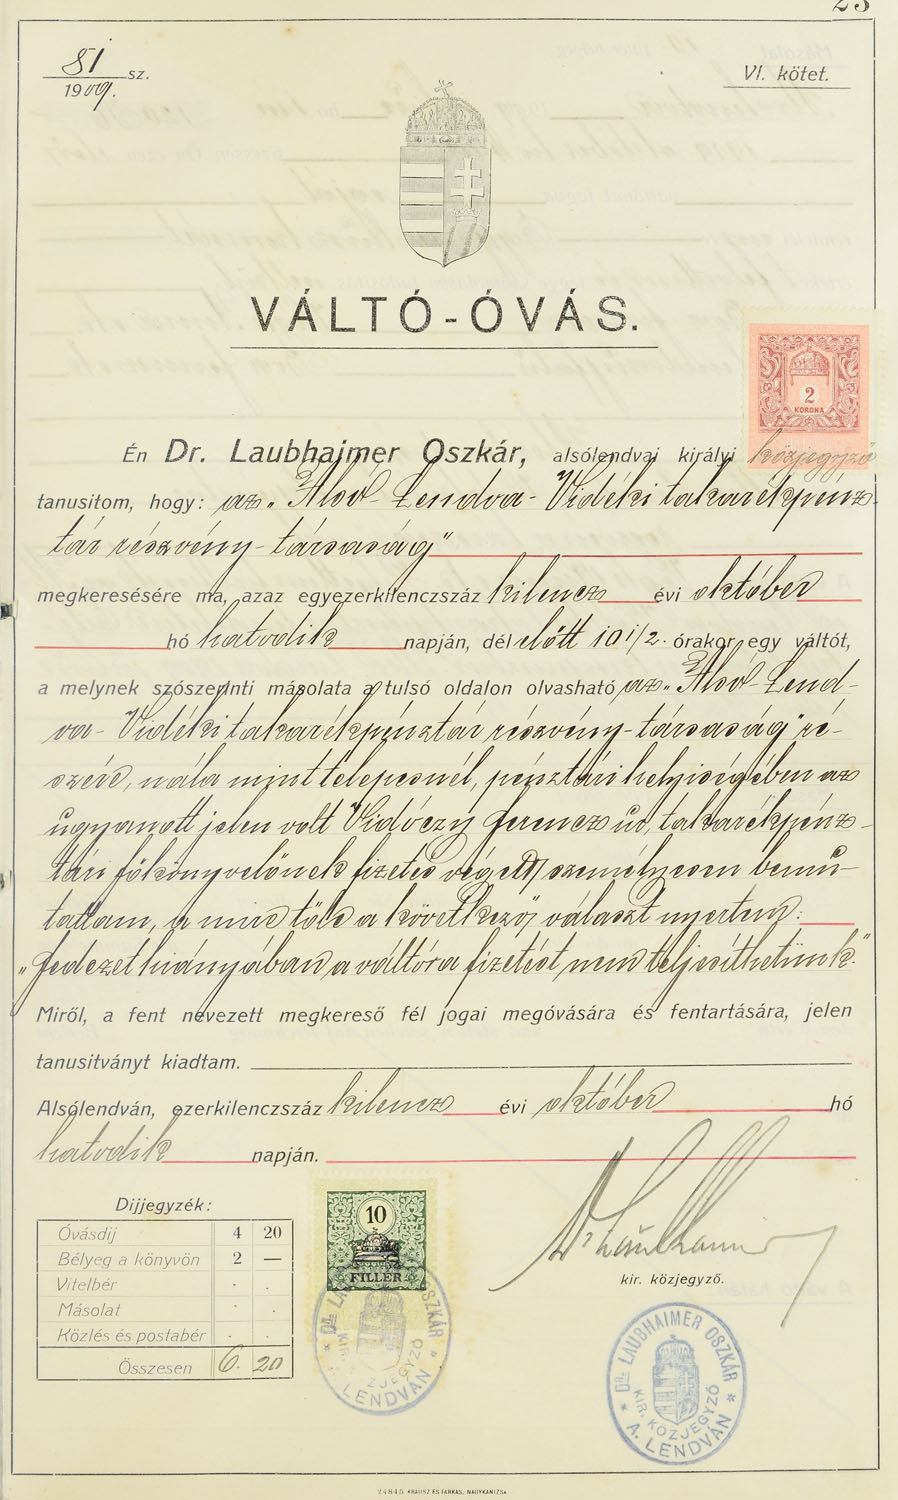 23
81 sz.
1909.
VI. kötet.
VÁLTÓ-ÓVÁS.
2
KORONA
Én Dr. Laubhaimer Oszkár, alsólendvai királyi közjegyző
tanusitom, hogy: az „Alsó-Lendva-Vidéki takarékpénz-
tár részvény-társaság"
megkeresésére ma, azaz egyezerkilenczszáz kilencz évi október
hó hatodik napján, dél előtt 10 1/2 órakor egy váltót,
a melynek szószerinti másolata a tulsó oldalon olvasható az „Alsó-Lend-
va-Vidéki takarékpénztár részvény-társaság" ré-
szére, nála mint telepesnél, pénztári helyiségében az
ugyanott jelen volt Vidóczy Ferencz ur, takarékpénz-
tári főkönyvelőnek fizetés végett személyesen bemu-
tattam, a mire tőle a következő választ nyertem:
„Fedezet hiányában a váltóra fizetést nem teljesíthetünk."
Miről, a fent nevezett megkereső fél jogai megóvására és fentartására, jelen
tanusitványt kiadtam.
Alsólendván, ezerkilenczszáz kilencz évi október hó
hatodik napján.
Dijjegyzék:
Óvásdij 4 20
Bélyeg a könyvön 2 —
Vitelbér . .
Másolat . .
Közlés és postabér . .
Összesen 6. 20
10
FILLÉR
DR. LAUBHAIMER OSZKÁR
KIR. KÖZJEGYZŐ
A. LENDVÁN
Dr Laubhaimer
kir. közjegyző.
DR. LAUBHAIMER OSZKÁR
KIR. KÖZJEGYZŐ
A. LENDVÁN
24845 KRAUSZ ÉS FARKAS, NAGYKANIZSA